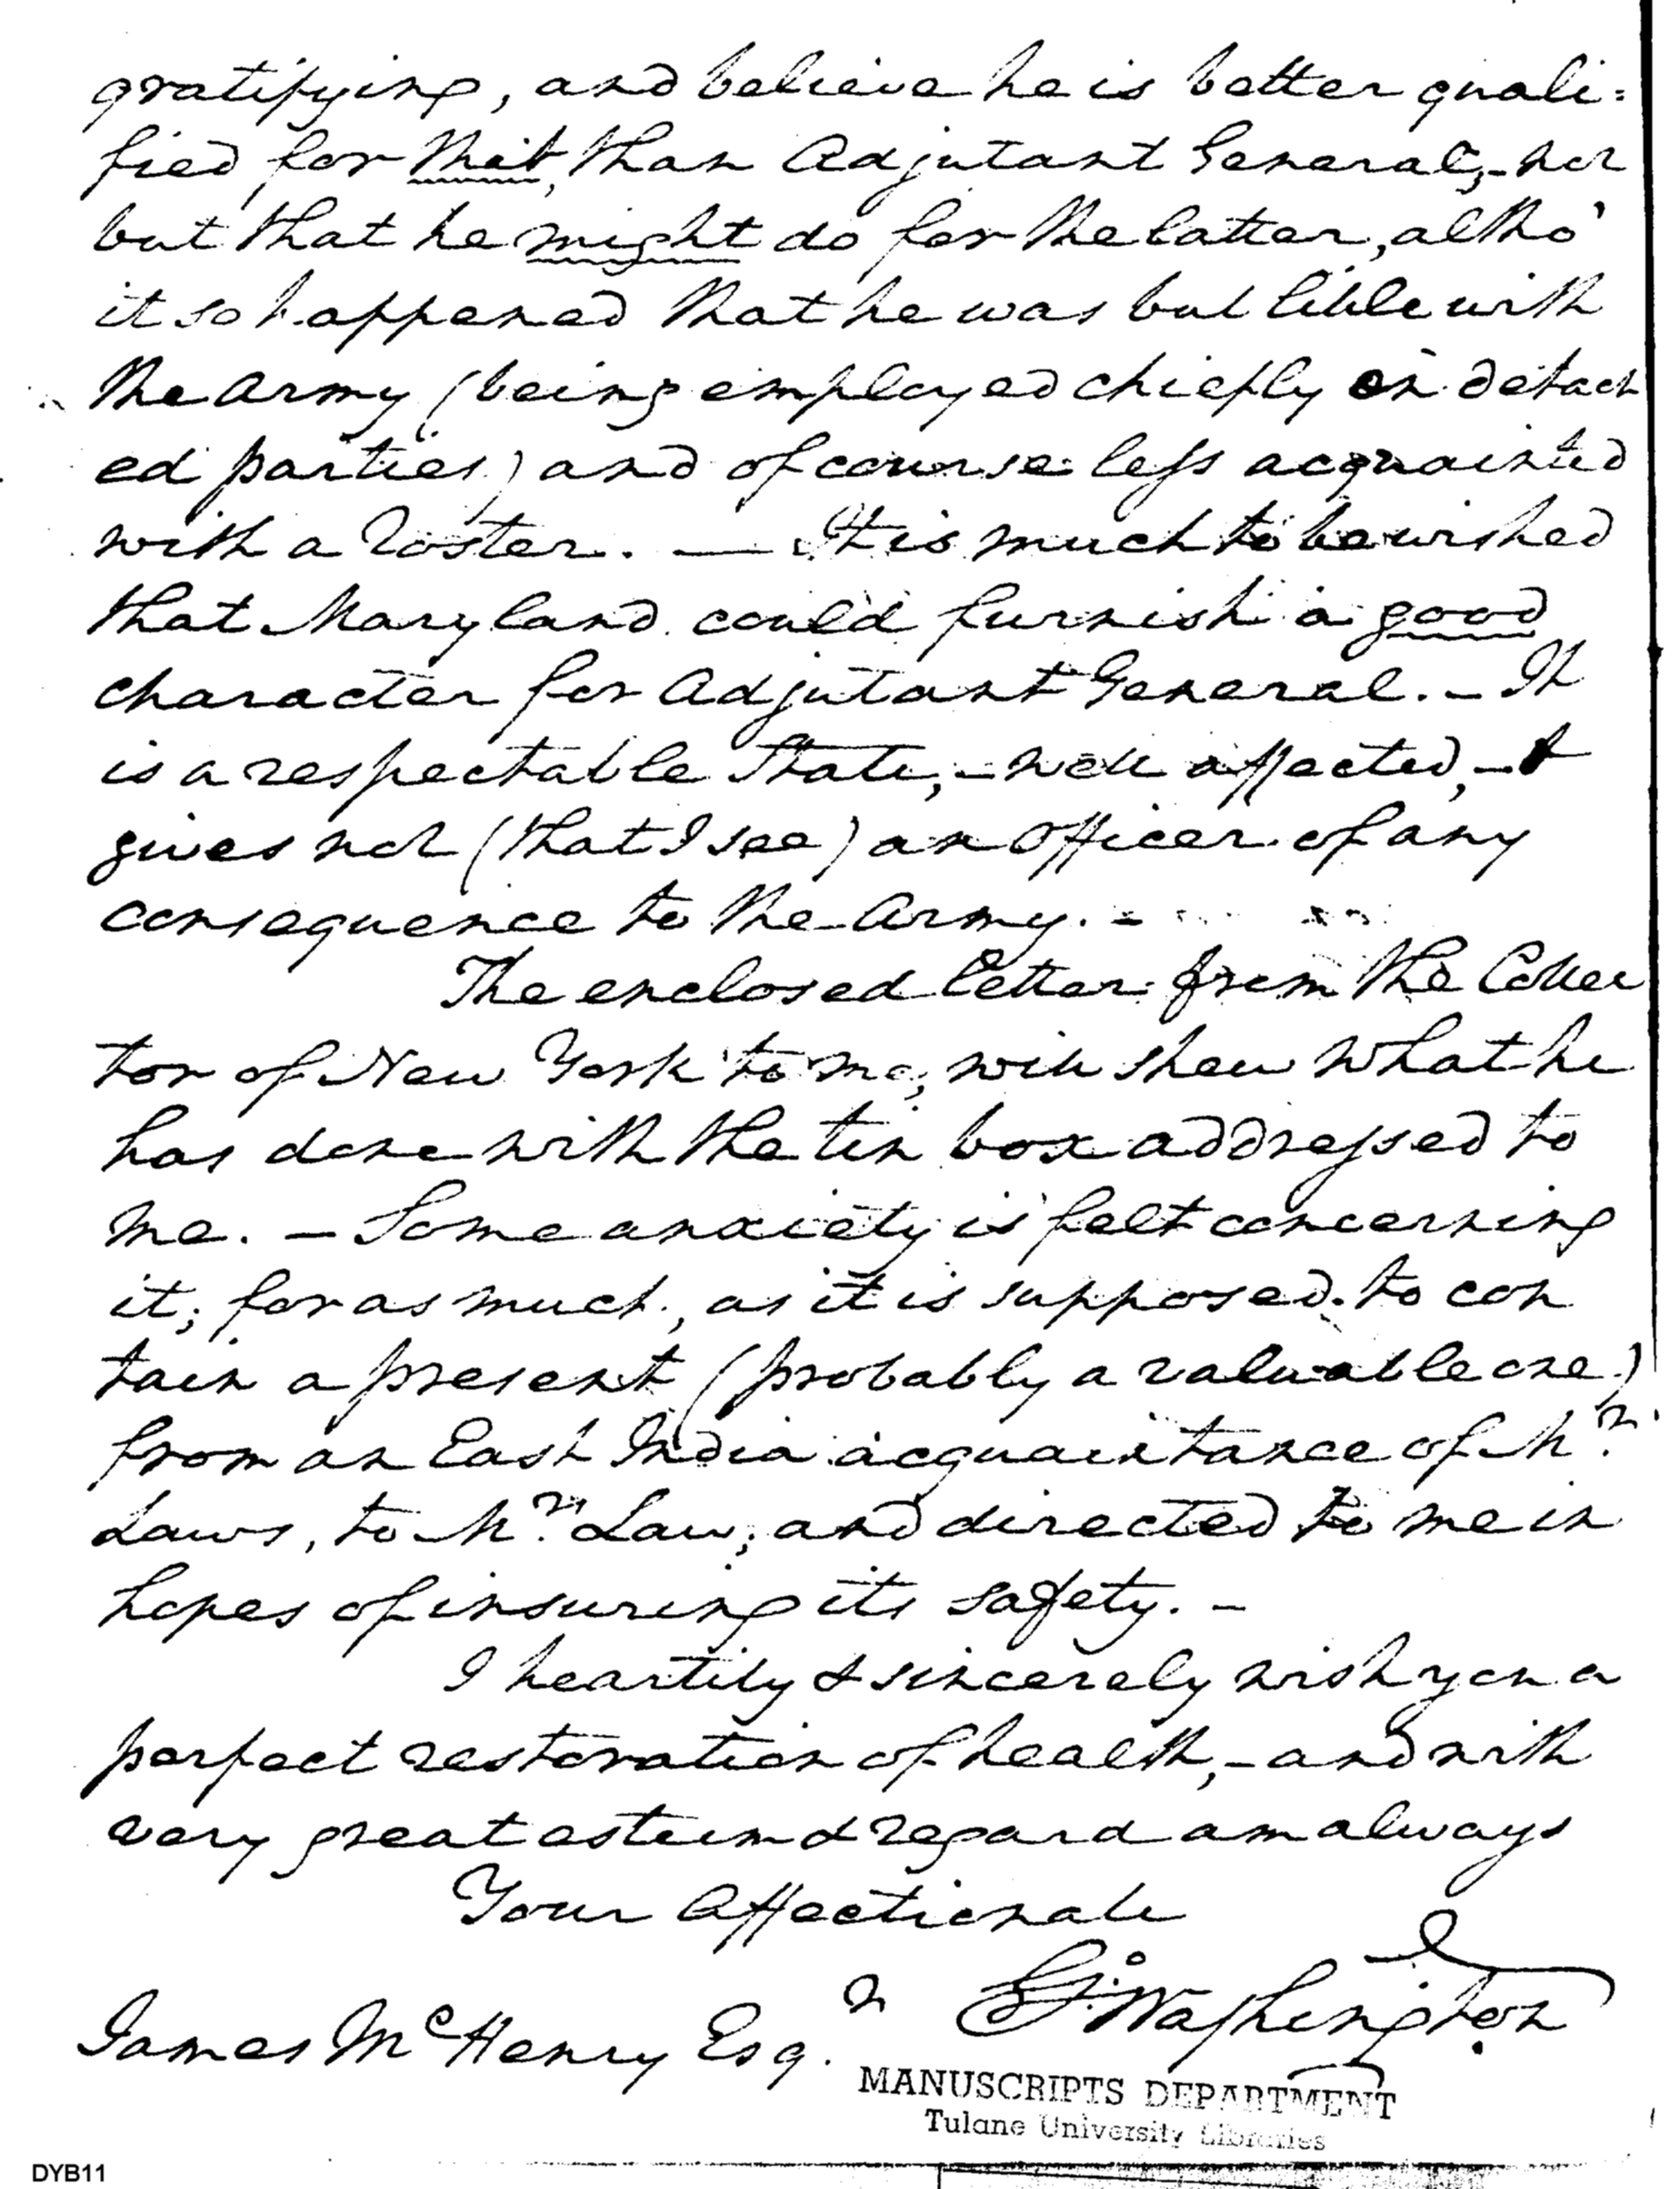 gratifying, and believe he is better quali=
fied for that, than Adjutant General,–not
but that he might do for the latter, altho'
it so happened that he was but little with
the Army (being employed chiefly on detach
ed parties) and of course less acquainted
with a Roster. — It is much to be wished
that Maryland could furnish a good
character for Adjutant General. – It
is a respectable State, – well affected, – &
gives not (that I see) an Officer of any
consequence to the Army. –
The enclosed letter from the Collec
tor of New York to me, will shew what he
has done with the tin box addressed to
me. – Some anxiety is felt concerning
it; for as much, as it is supposed to con
tain a present (probably a valuable one)
from an East India acquaintance of Mr.
Laws, to Mrs. Law; and directed to me in
hopes of insuring its safety. –
I heartily & sincerely wish you a
perfect restoration of health, – and with
very great esteem & regard am always
Your Affectionate
Go: Washington
James McHenry Esqr.
MANUSCRIPTS DEPARTMENT
Tulane University Libraries
DYB11